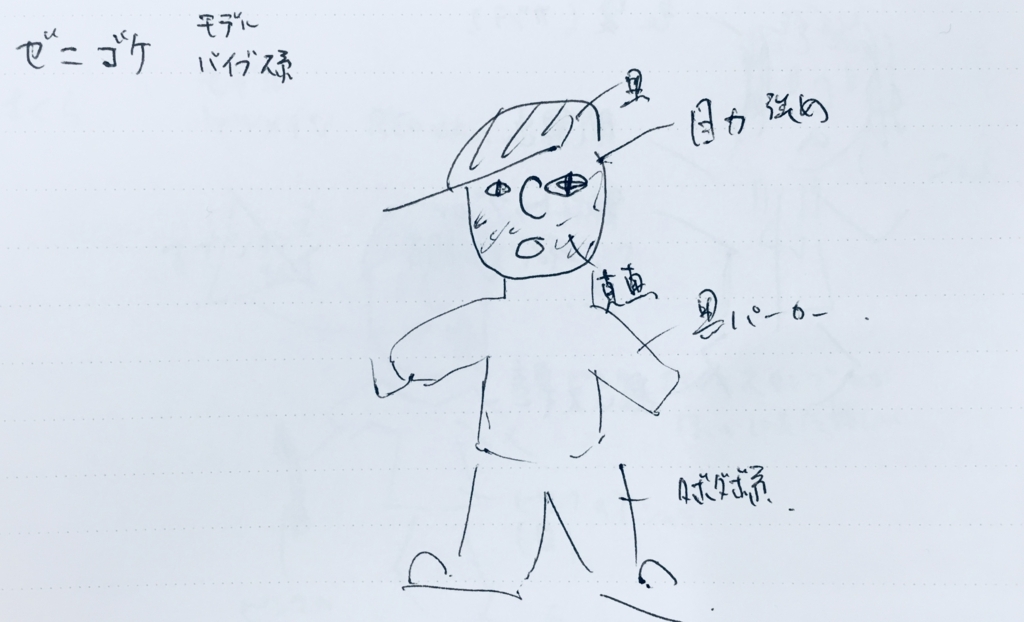 ゼニゴケ
モデル
バイブス系
黒
目力 強め
黒パーカー
ダボダボ系